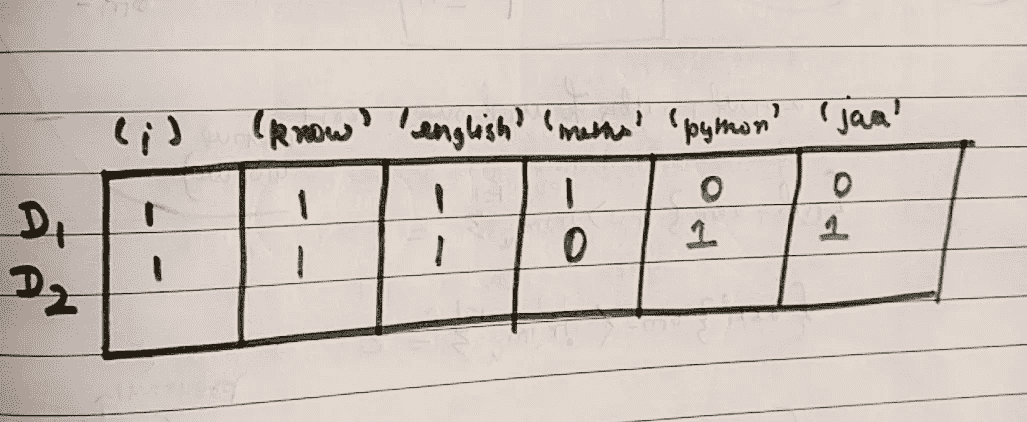 'i' 'know' 'english' 'maths' 'python' 'jaa'
D1 1 1 1 1 0 0
D2 1 1 1 0 1 1